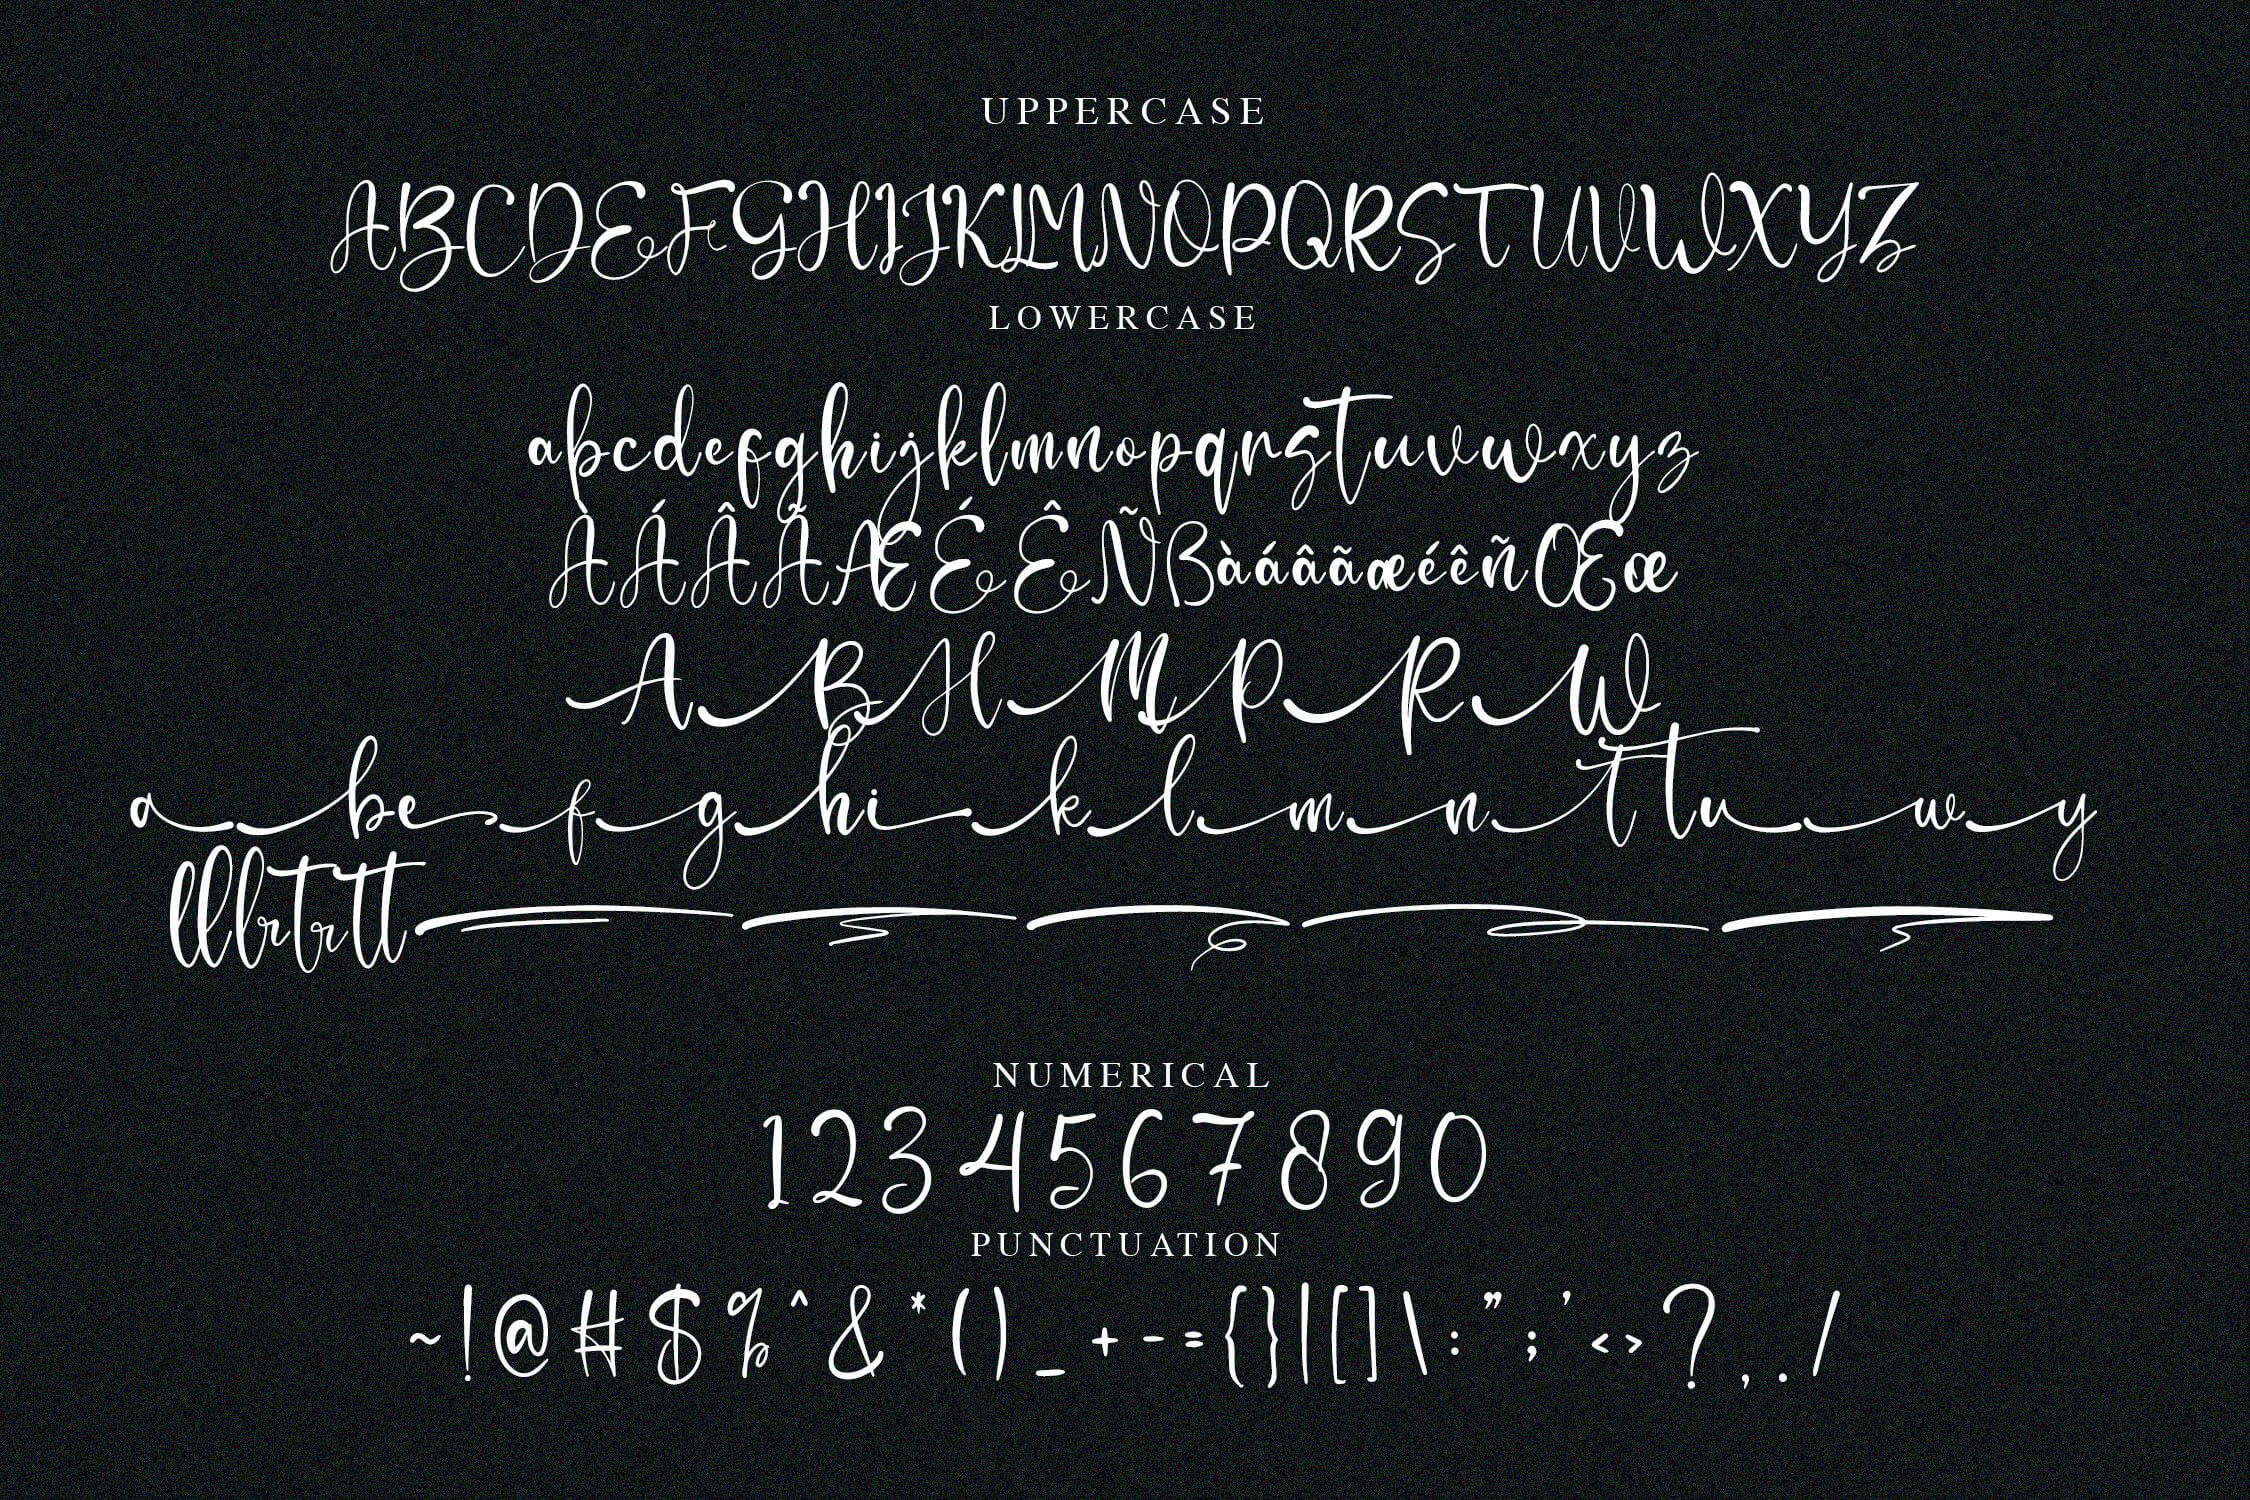 UPPERCASE
ABCDEFGHIJKLMNOPQRSTUVWXYZ
LOWERCASE
abcdefghijklmnopqrstuvwxyz
ÀÁÂÃÆÉÊÑßàáâãæéêñŒœ
A B H M P R W
a b e f g h i k l m n t t u w y
ll lr tr tt
NUMERICAL
1 2 3 4 5 6 7 8 9 0
PUNCTUATION
~ ! @ # $ % ^ & * ( ) _ + - = { } | [ ] \ : ” ; ’ < > ? , . /